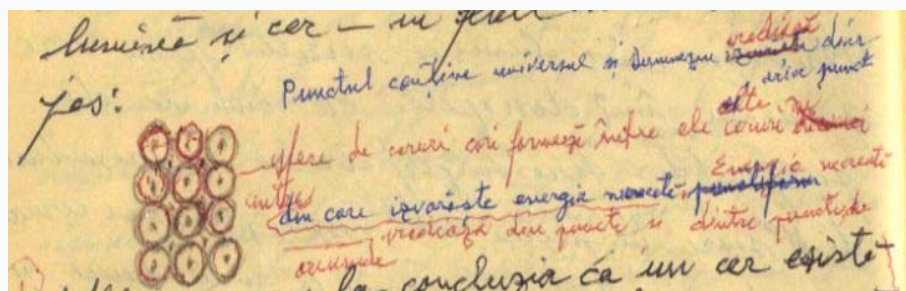 lumină și cer – în
jos:
iradiază
Punctul conține universul și Dumnezeu dintr
orice punct
alte
sfere de ceruri cari formează între ele ceruri
centre Energia necreată
din care izvorăște energia necreată punctiform
iradiază din puncte și dintre punctele
oriunde
la concluzia că un cer există